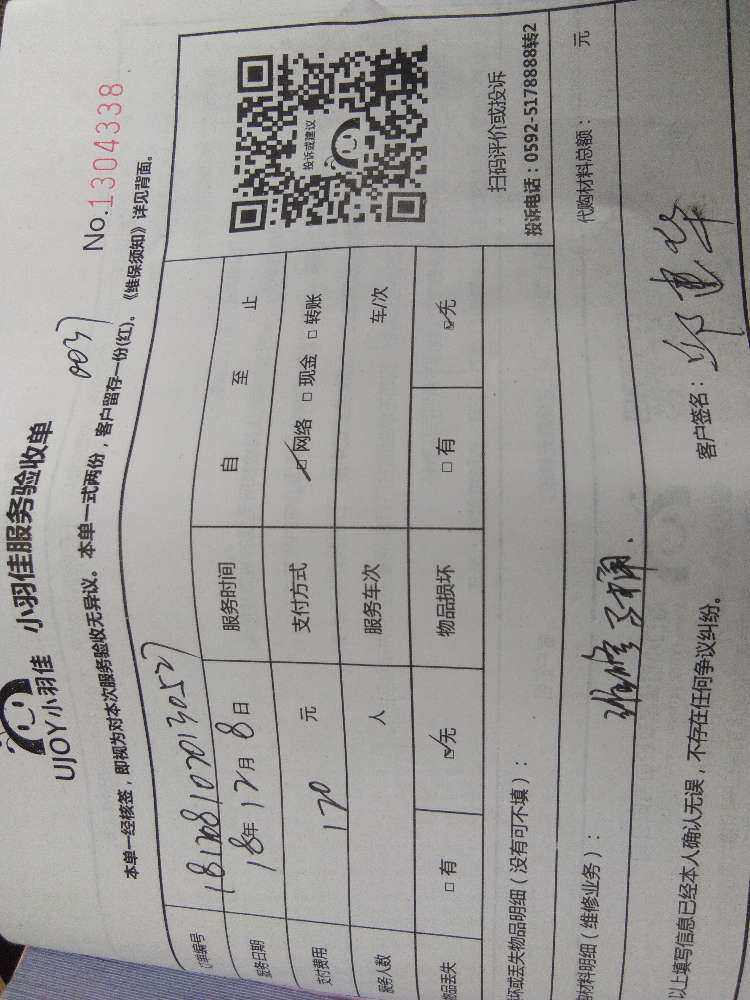 UJOY小羽佳 小羽佳服务验收单
0037
No.1304338
本单一经核签，即视为对本次服务验收无异议。本单一式两份，客户留存一份(红)。《维保须知》详见背面。
订单编号
服务日期 18年12月8日 服务时间 自 至 止
支付费用 120 元 支付方式 □网络 □现金 □转账
服务人数 人 服务车次 车/次
物品丢失 □有 □无 物品损坏 □有 □无
投诉或建议
扫码评价或投诉
投诉电话：0592-5178888转2
坏或丢失物品明细（没有可不填）：
材料明细（维修业务）： 代购材料总额： 元
维修马桶.
以上填写信息已经本人确认无误，不存在任何争议纠纷。 客户签名：